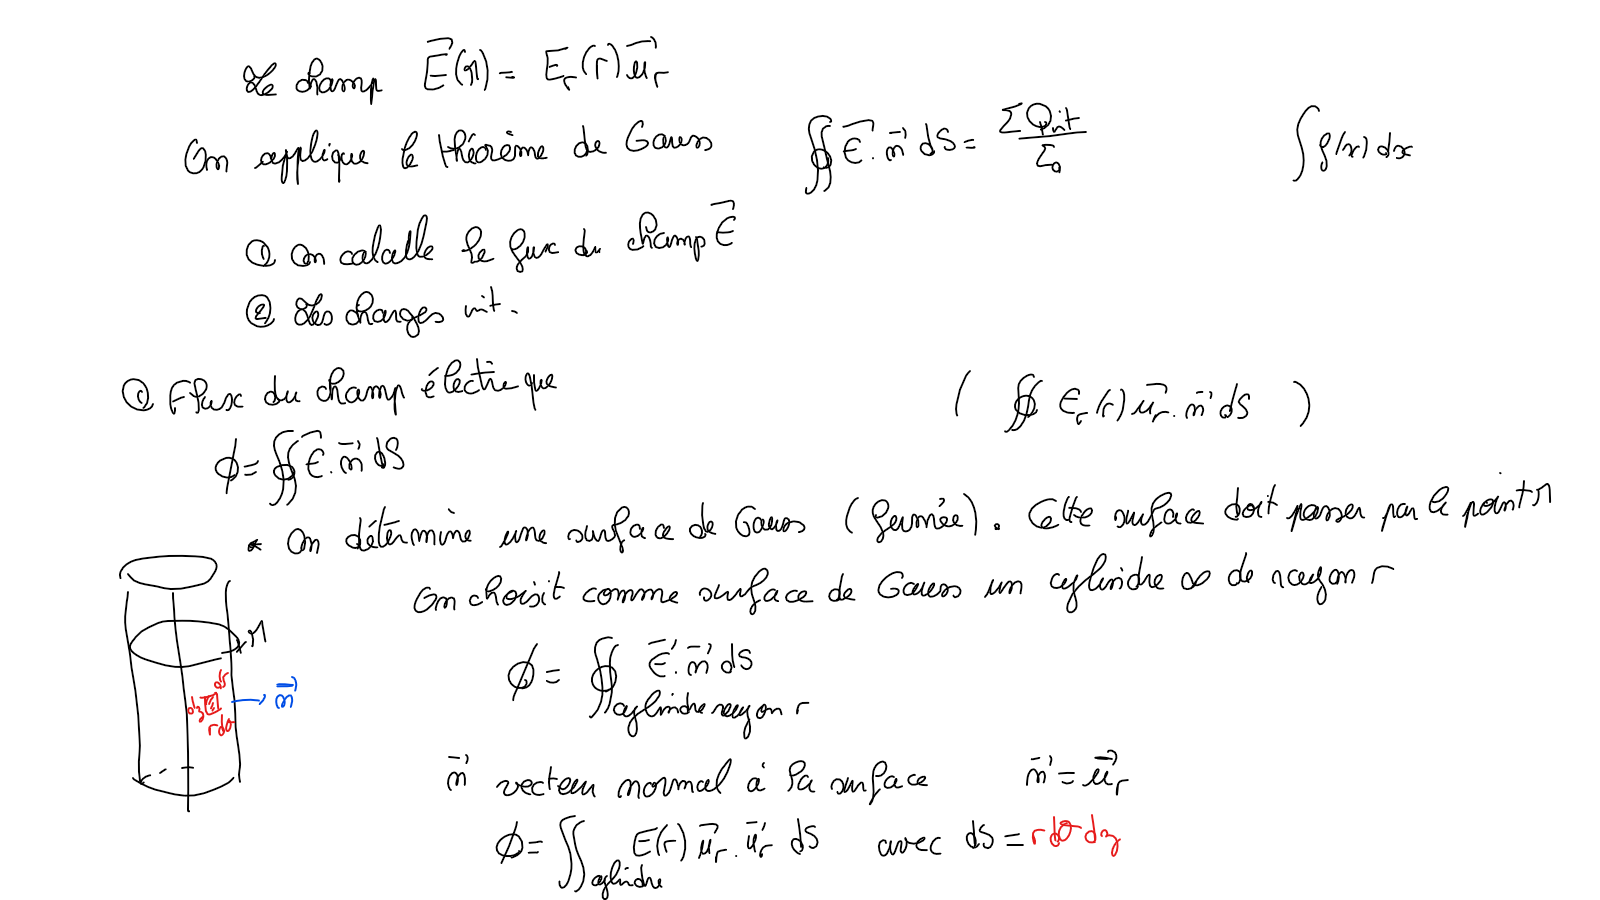 Le champ E⃗(M) = E_r(r) u⃗_r
On applique le théorème de Gauss ∯ E⃗.n⃗ dS = ΣQint/ε₀ ∫ f(x) dx
① On calcule le flux du champ E⃗
② Les charges int.
① Flux du champ électrique ( ∯ E_r(r) u⃗_r.n⃗ dS )
ϕ = ∯ E⃗.n⃗ dS
* On détermine une surface de Gauss (fermée). Cette surface doit passer par le point M
On choisit comme surface de Gauss un cylindre ∞ de rayon r
M
dS
dz
rdθ
n⃗
ϕ = ∯ E⃗.n⃗ dS
cylindre rayon r
n⃗ vecteur normal à la surface n⃗ = u⃗_r
ϕ = ∬ E(r) u⃗_r.u⃗_r dS avec dS = rdθdz
cylindre